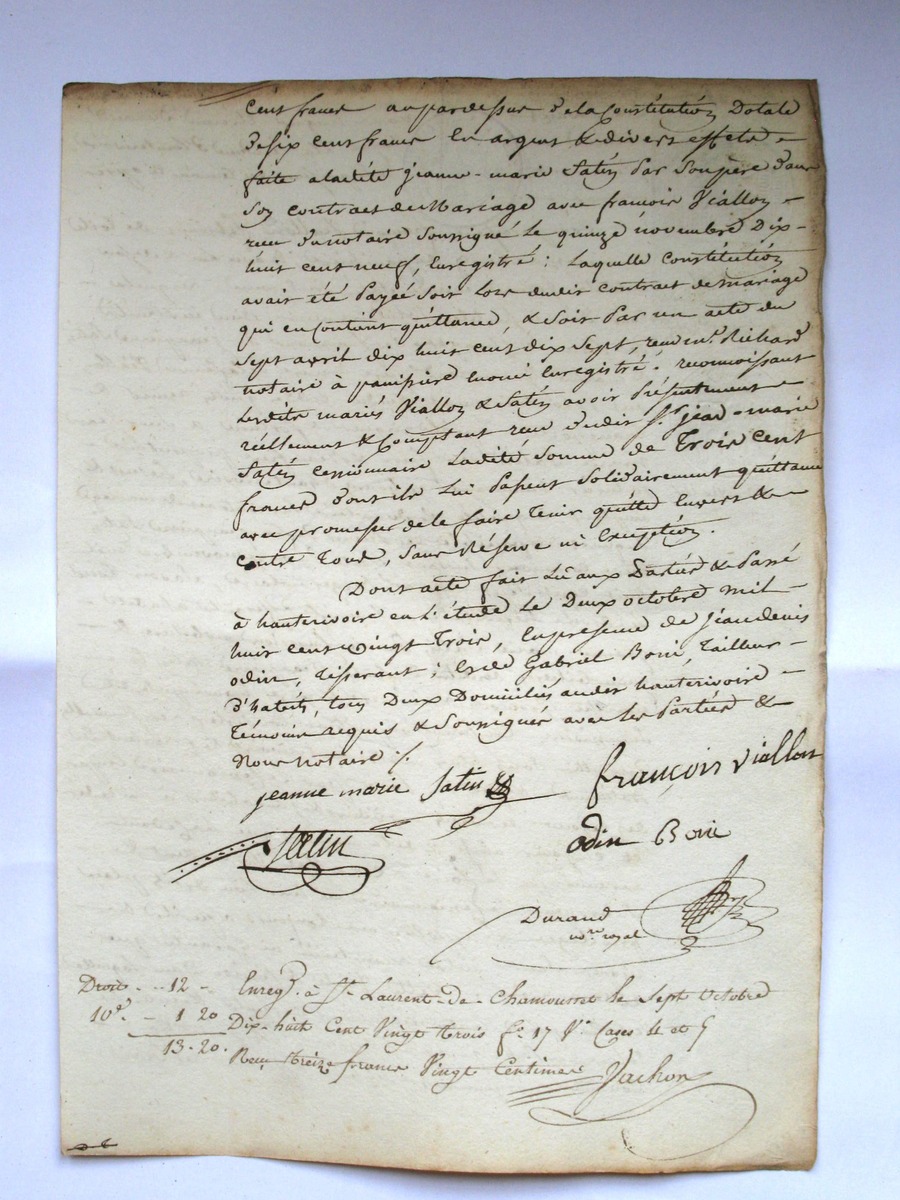 Cent francs au par dessus de la Constitution Dotale
de six cent francs En argent & divers effets
faite a ladite jeanne-marie Satin Par Son père dans
Son contract de Mariage avec francois Viallon
reçu du notaire Soussigné le quinze novembre Dix-
huit cent neuf, Enregistré : Laquelle Constitution
avait été Payée Soit Lors dudit contract de mariage
qui en Contient quittance, & Soit Par un acte du
Sept avril dix huit cent dix Sept, reçu me. Richard
notaire à aussi Enregistré. reconnoissant
Lesdits mariés Viallon & Satin avoir Présentement
réellement & Comptant reçu dudit Sr. jean-marie
Satin cessionnaire Ladite Somme de Trois Cent
francs dont ils Lui Passent Solidairement quittance
avec promesse de le faire Tenir quitte Envers &
Contre Tous, Sans Réserve ni Exception.
Dont acte fait Lu aux Parties & Passé
à hauterivoire en L'étude Le Deux octobre mil
huit cent vingt Trois, En presence de Jean denis
odin, Tisserant ; & de Gabriel Boiri, Tailleur
D'habits, tous Deux Domiciliés audit hauterivoire
Témoins requis & Soussignés avec les Parties &
Nous notaire ./.
jeanne marie Satin
françois viallon
Satin
odin Boiri
Durand
nore. royal
Droits . . 12 -
10e. - 1 20
13-20.
Enregé. à St. Laurent-de-Chamousset le Sept Octobre
Dix-huit Cent Vingt trois fo. 17 Vo. Cases 4 et 5
Reçu treize francs Vingt Centimes Vachon